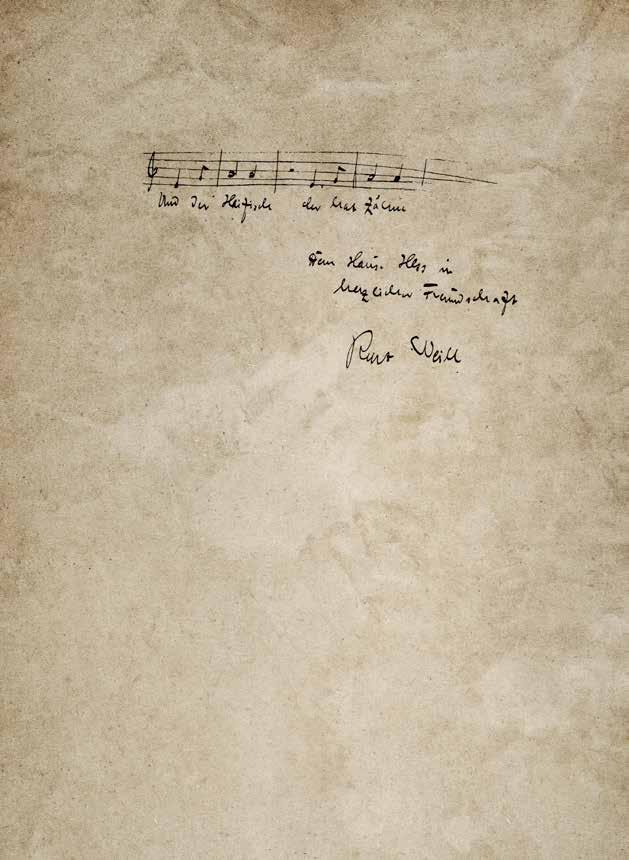 Und der Haifisch der hat Zähne
Dem Haus Hess in
herzlicher Freundschaft
Kurt Weill